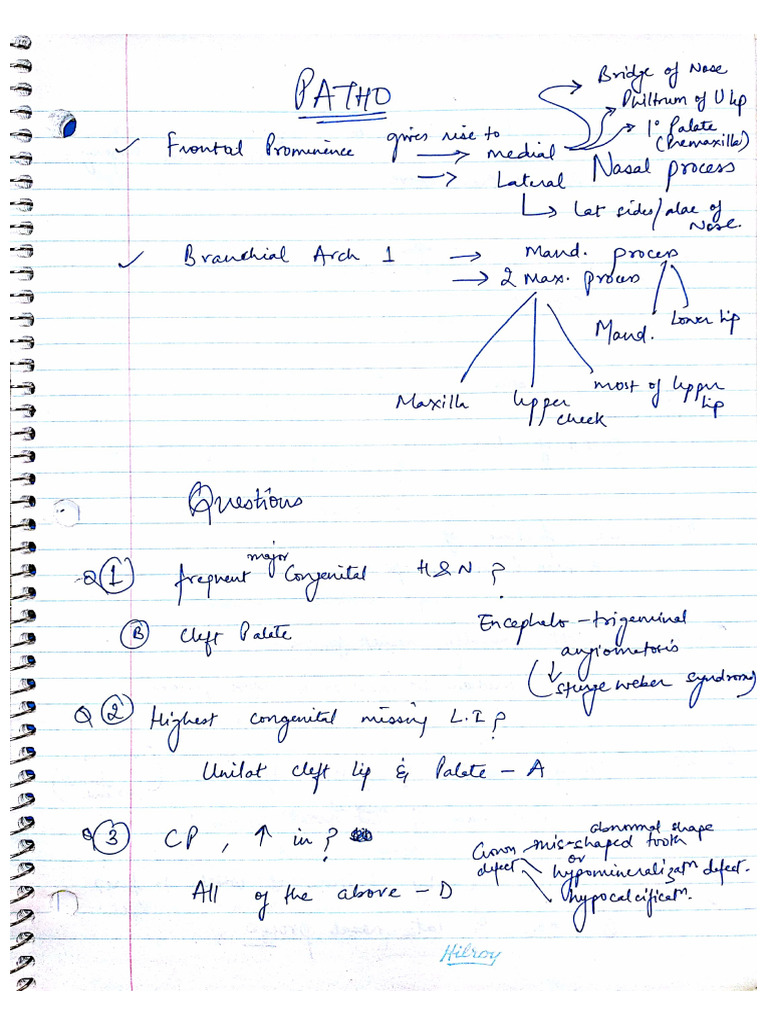 PATHO
✓ Frontal Prominence gives rise to → medial
→ Lateral
Nasal process
Bridge of Nose
Philtrum of U lip
1° Palate
(Premaxilla)
Lat sides/alae of
Nose.
✓ Branchial Arch 1 → Mand. process
→ 2 Max. process
Mand. Lower lip
Maxilla Upper
cheek
most of Upper
lip
Questions
Q 1 frequent major Congenital H&N. ?
B Cleft Palate
Encephalo-trigeminal
angiomatosis
(↓ Sturge weber syndrome)
Q 2 Highest congenital missing L.I ?
Unilat cleft lip & Palate - A
Q 3 CP, ↑ in ?
All of the above - D
Crown
defect
abnormal shape
mis-shaped tooth
or
hypomineralizatn defect.
hypocalcificatn.
Hilroy